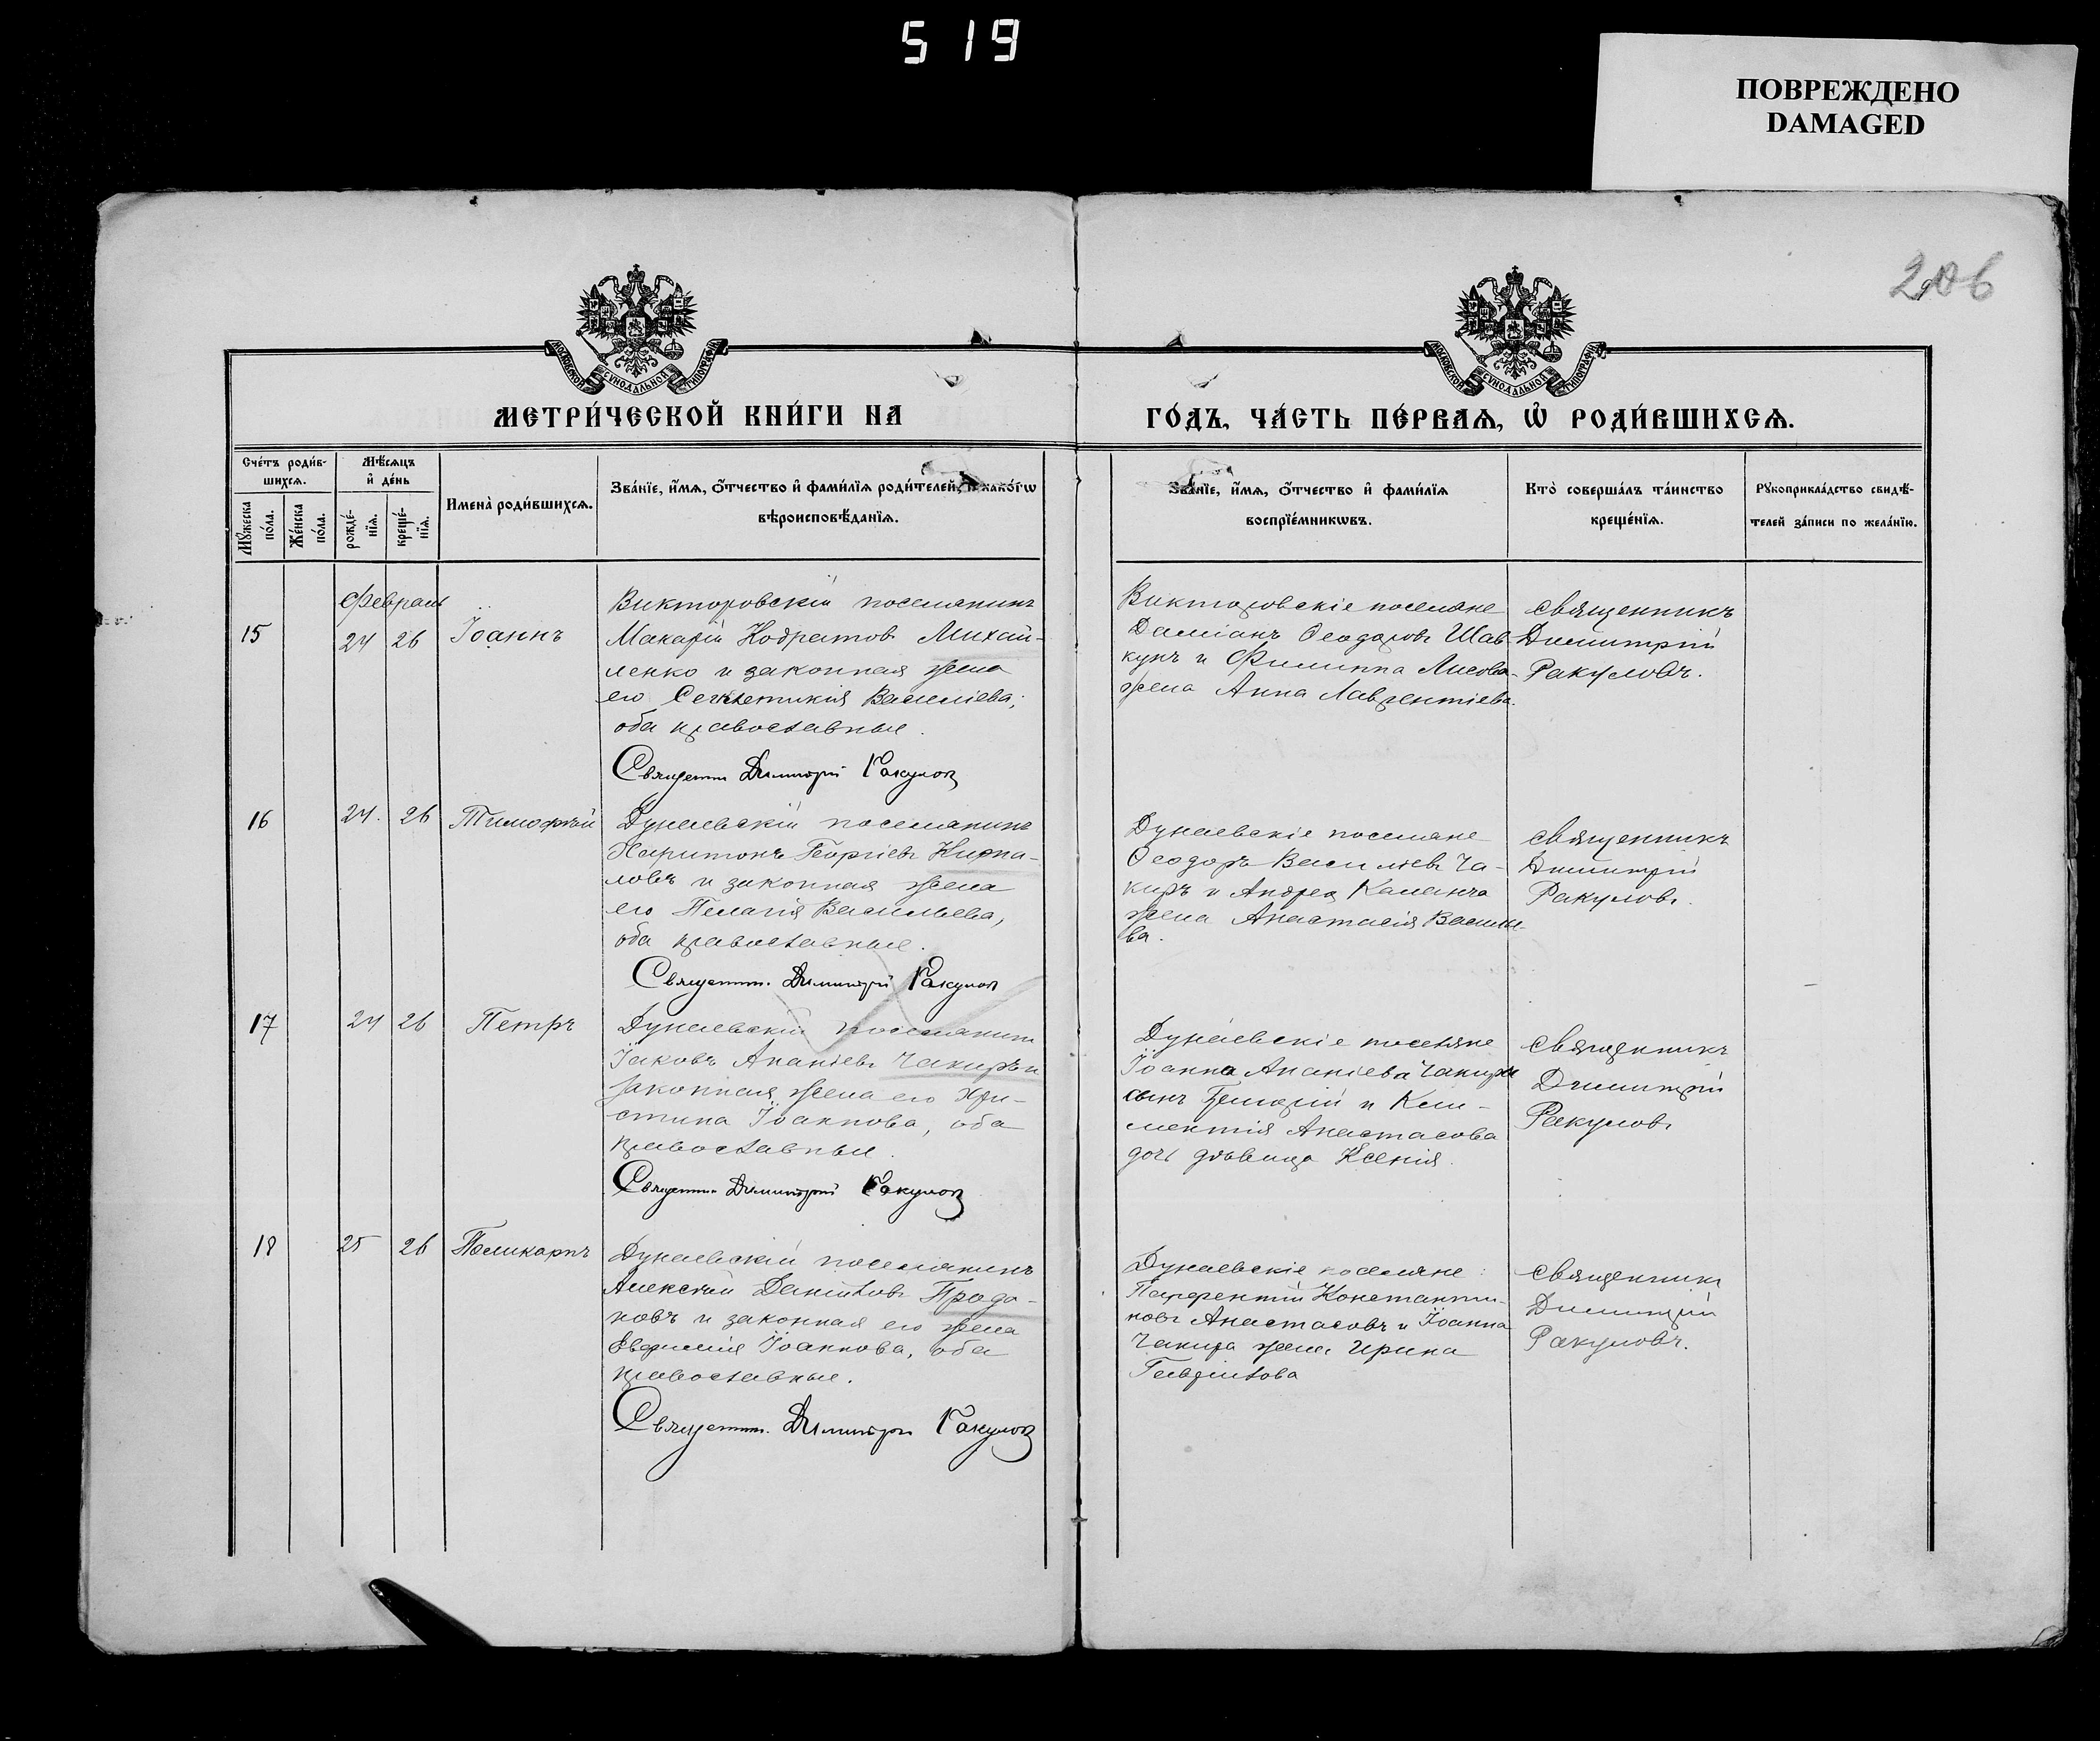 519
ПОВРЕЖДЕНО
DAMAGED
206
МОСКОВСКОЙ СѴНОДАЛЬНОЙ ТИПОГРАФІИ
МОСКОВСКОЙ СѴНОДАЛЬНОЙ ТИПОГРАФІИ
МЕТРИ́ЧЕСКОЙ КНИ́ГИ НА
ГО́ДЪ, ЧА́СТЬ ПЕ́РВАѦ, Ѡ҆ РОДИ́ВШИХСѦ.
Сче́тъ роди́в-
шихсѧ.
Мѣ́сѧцъ
и҆ де́нь
Мꙋ́жеска
по́ла.
Же́нска
по́ла.
рожде́-
нїѧ.
креще́-
нїѧ.
Имена̀ роди́вшихсѧ.
Зва́нїе, и҆́мѧ, ѻ҆́тчество и҆ фами́лїѧ роди́телей, и҆ како́гѡ
вѣроисповѣ́данїѧ.
Зва́нїе, и҆́мѧ, ѻ҆́тчество и҆ фами́лїѧ
воспрїе́мникѡвъ.
Кто̀ соверша́лъ та́инство
креще́нїѧ.
Рꙋкоприкла́дство свидѣ́-
телей за́писи по жела́нїю.
Февраль
15 24 26 Іоаннъ
Викторовскій поселянинъ
Макарій Кодратов Михай-
ленко и законная жена
его Секлетикія Василіева,
оба православные.
Священн. Димитрій Ракулов
Викторовскіе поселяне
Даміанъ Ѳеодоровъ Шав-
кунъ и Филиппа
жена Анна Лаврентіева.
священникъ
Димитрій
Ракуловъ.
16 24. 26 Тимоѳей
Дунаевскій поселянинъ
Харитонъ Георгіевъ Кирпа-
ловъ и законная жена
его Пелагія Васильева,
оба православные.
Священн. Димитрій Ракулов
Дунаевскіе поселяне
Ѳеодоръ Василіевъ Ча-
киръ и Андрея
жена Анастасія Василіе-
ва.
священникъ
Димитрій
Ракуловъ.
17 24 26 Петръ
Дунаевскій поселянинъ
Іаковъ Ананіевъ Чакиръ и
законная жена его Хри-
стина Іоаннова, оба
православные.
Священн. Димитрій Ракулов
Дунаевскіе поселяне
Іоанна Ананіева Чакира
сынъ Григорій и Кли-
ментія Анастасова
дочь дѣвица Ксенія.
священникъ
Димитрій
Ракуловъ
18 25 26 Поликарпъ
Дунаевскій поселянинъ
Алексѣй Даниловъ Продa-
новъ и законная его жена
Евфимія Іоаннова, оба
православные.
Священн. Димитрій Ракулов
Дунаевскіе поселяне:
Парфентій Константи-
новъ Анастасовъ и Іоанна
Чакира жена Ирина
Гаврилова
священникъ
Димитрій
Ракуловъ.